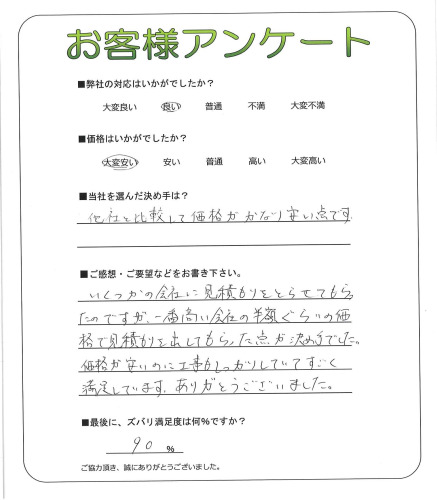 お客様アンケート
■弊社の対応はいかがでしたか?
大変良い 良い 普通 不満 大変不満
■価格はいかがでしたか?
大変安い 安い 普通 高い 大変高い
■当社を選んだ決め手は?
他社と比較して価格がかなり安い点です.
■ご感想・ご要望などをお書き下さい。
いくつかの会社に見積もりをとらせてもらっ
たのですが、一番高い会社の半額ぐらいの価
格で見積もりを出してもらった点が決め手でした。
価格が安いのに工事もしっかりしていてすごく
満足しています。ありがとうございました。
■最後に、ズバリ満足度は何%ですか?
90 %
ご協力頂き、誠にありがとうございました。